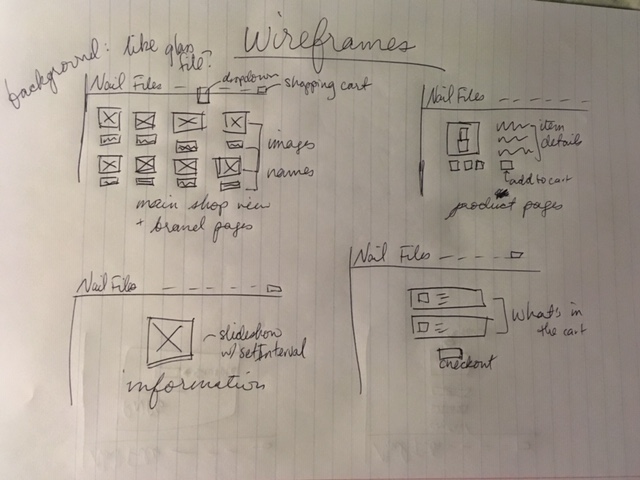 Wireframes
background: like glass
file?
Nail Files
dropdown
shopping cart
images
names
main shop view
+ brand pages
Nail Files
item
details
add to cart
product pages
Nail Files
slideshow
w/ setInterval
information
Nail Files
what's in
the cart
checkout